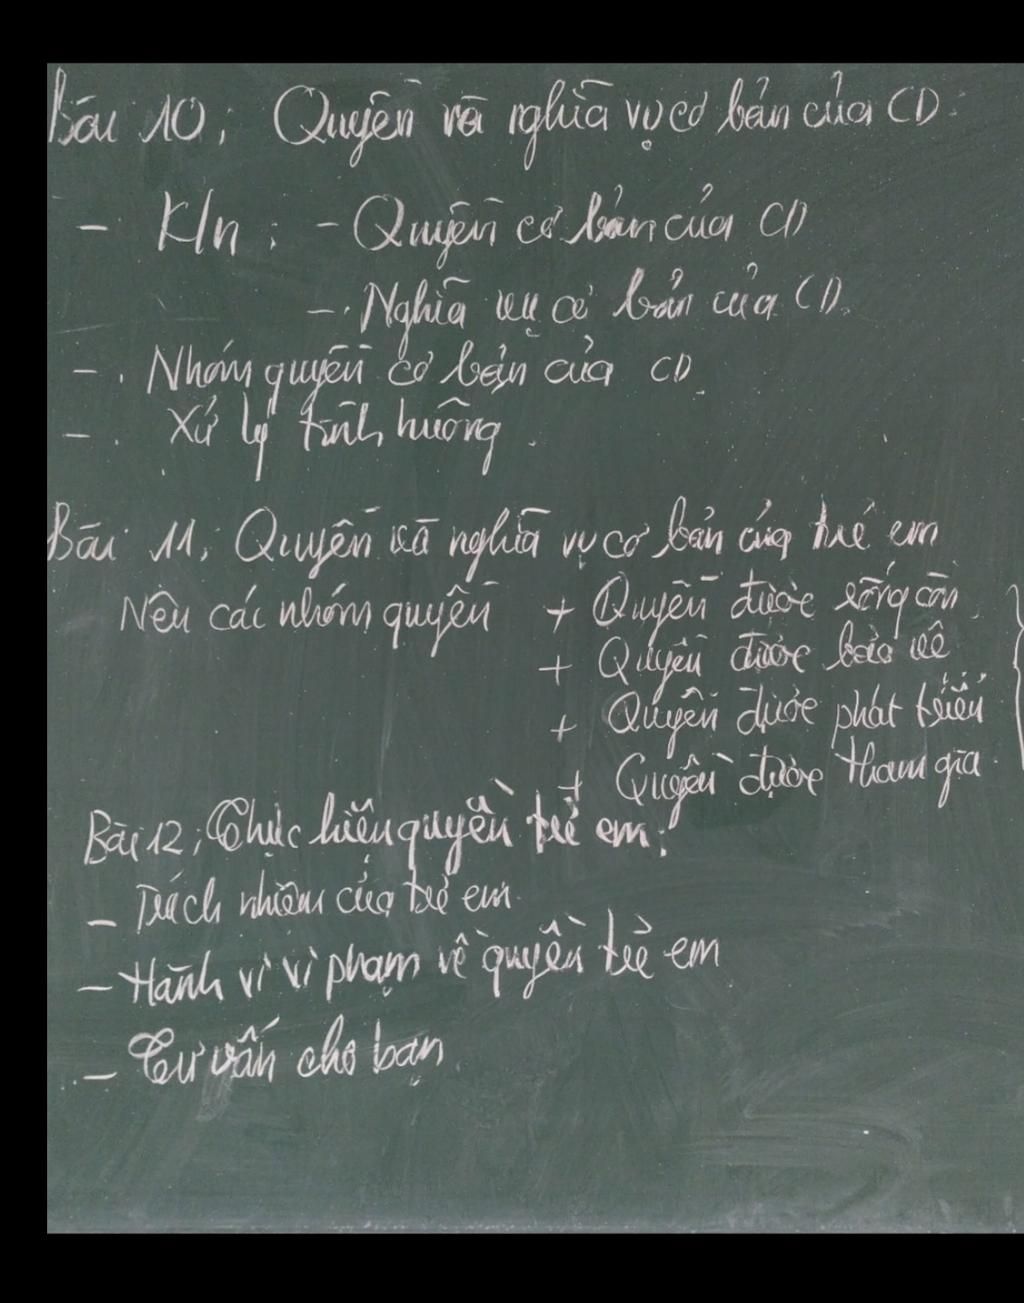 Bài 10: Quyền và nghĩa vụ cơ bản của CD
- K/n: - Quyền cơ bản của CD
- Nghĩa vụ cơ bản của CD
- Nhóm quyền cơ bản của CD
- Xử lý tình huống
Bài 11: Quyền và nghĩa vụ cơ bản của trẻ em
Nêu các nhóm quyền + Quyền được sống còn
+ Quyền được bảo vệ
+ Quyền được phát triển
+ Quyền được tham gia
Bài 12: Thực hiện quyền trẻ em:
- Trách nhiệm của trẻ em
- Hành vi vi phạm về quyền trẻ em
- Tư vấn cho bạn